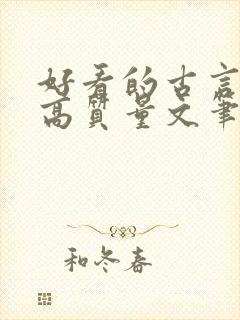 好看的古言
高质量文笔
和冬春